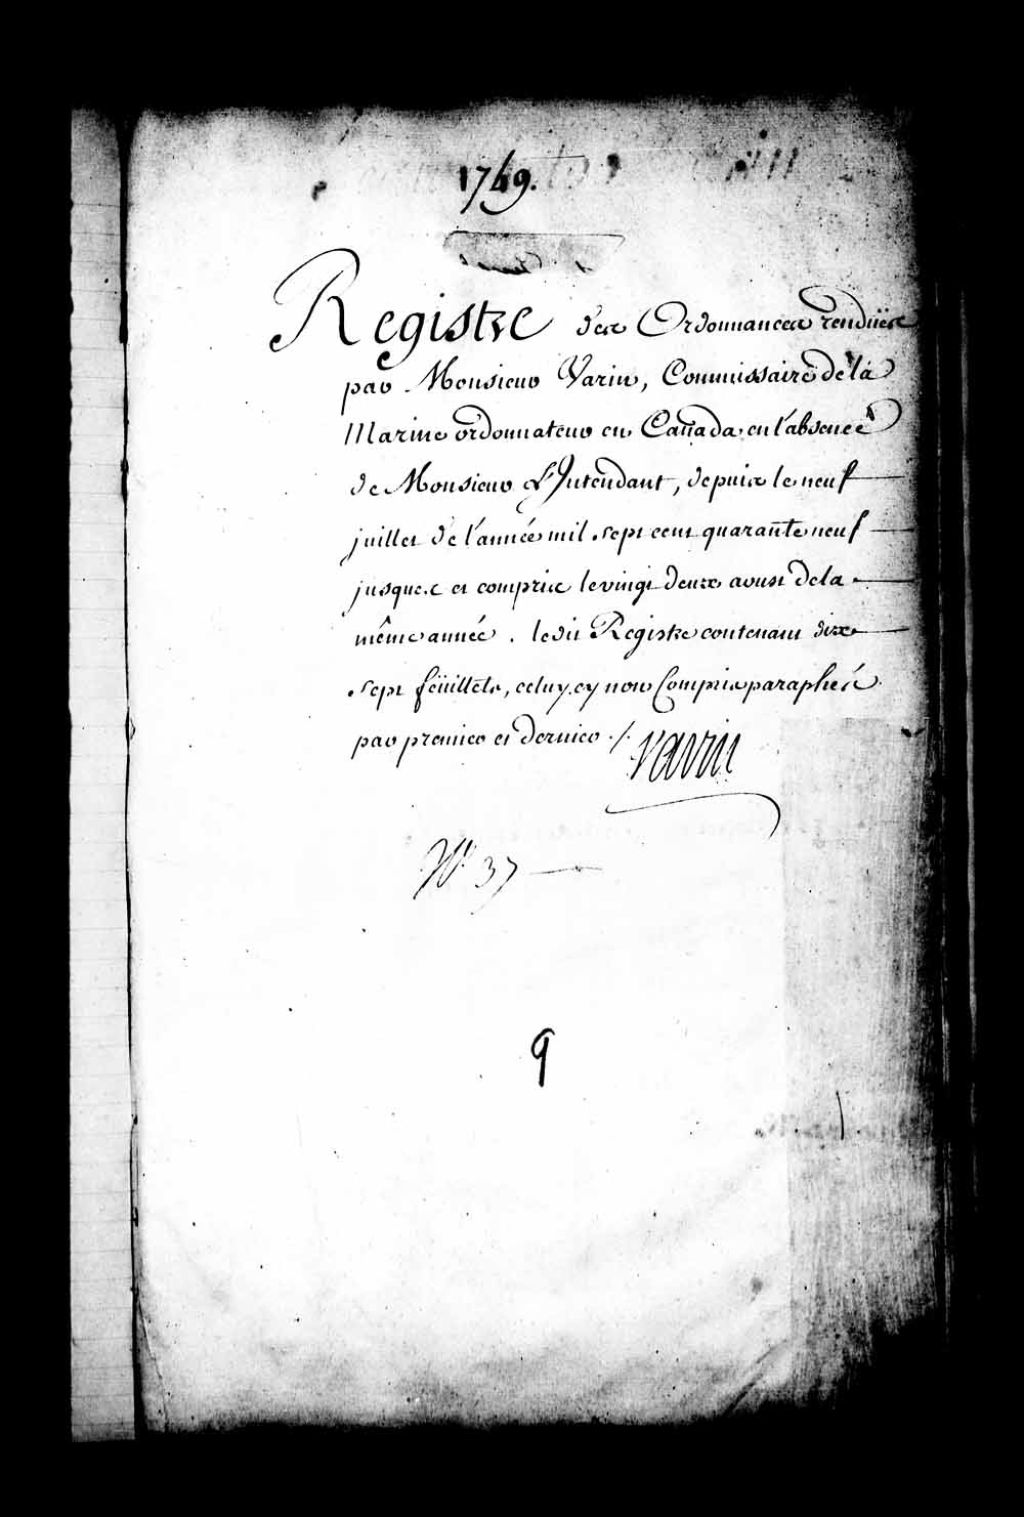 1749.
Registre des Ordonnances renduës
par Monsieur Varin, Commissaire de la
Marine ordonnateur en Canada en l'absence
de Monsieur L'Intendant, depuis le neuf
juillet de l'année mil sept cent quarante neuf
jusques et compris le vingt deux aoust de la
même année. ledit Registre contenant dix
sept feüillets, celuy cy non Compris paraphés
par premier et dernier ./.
Varin
No. 37
9